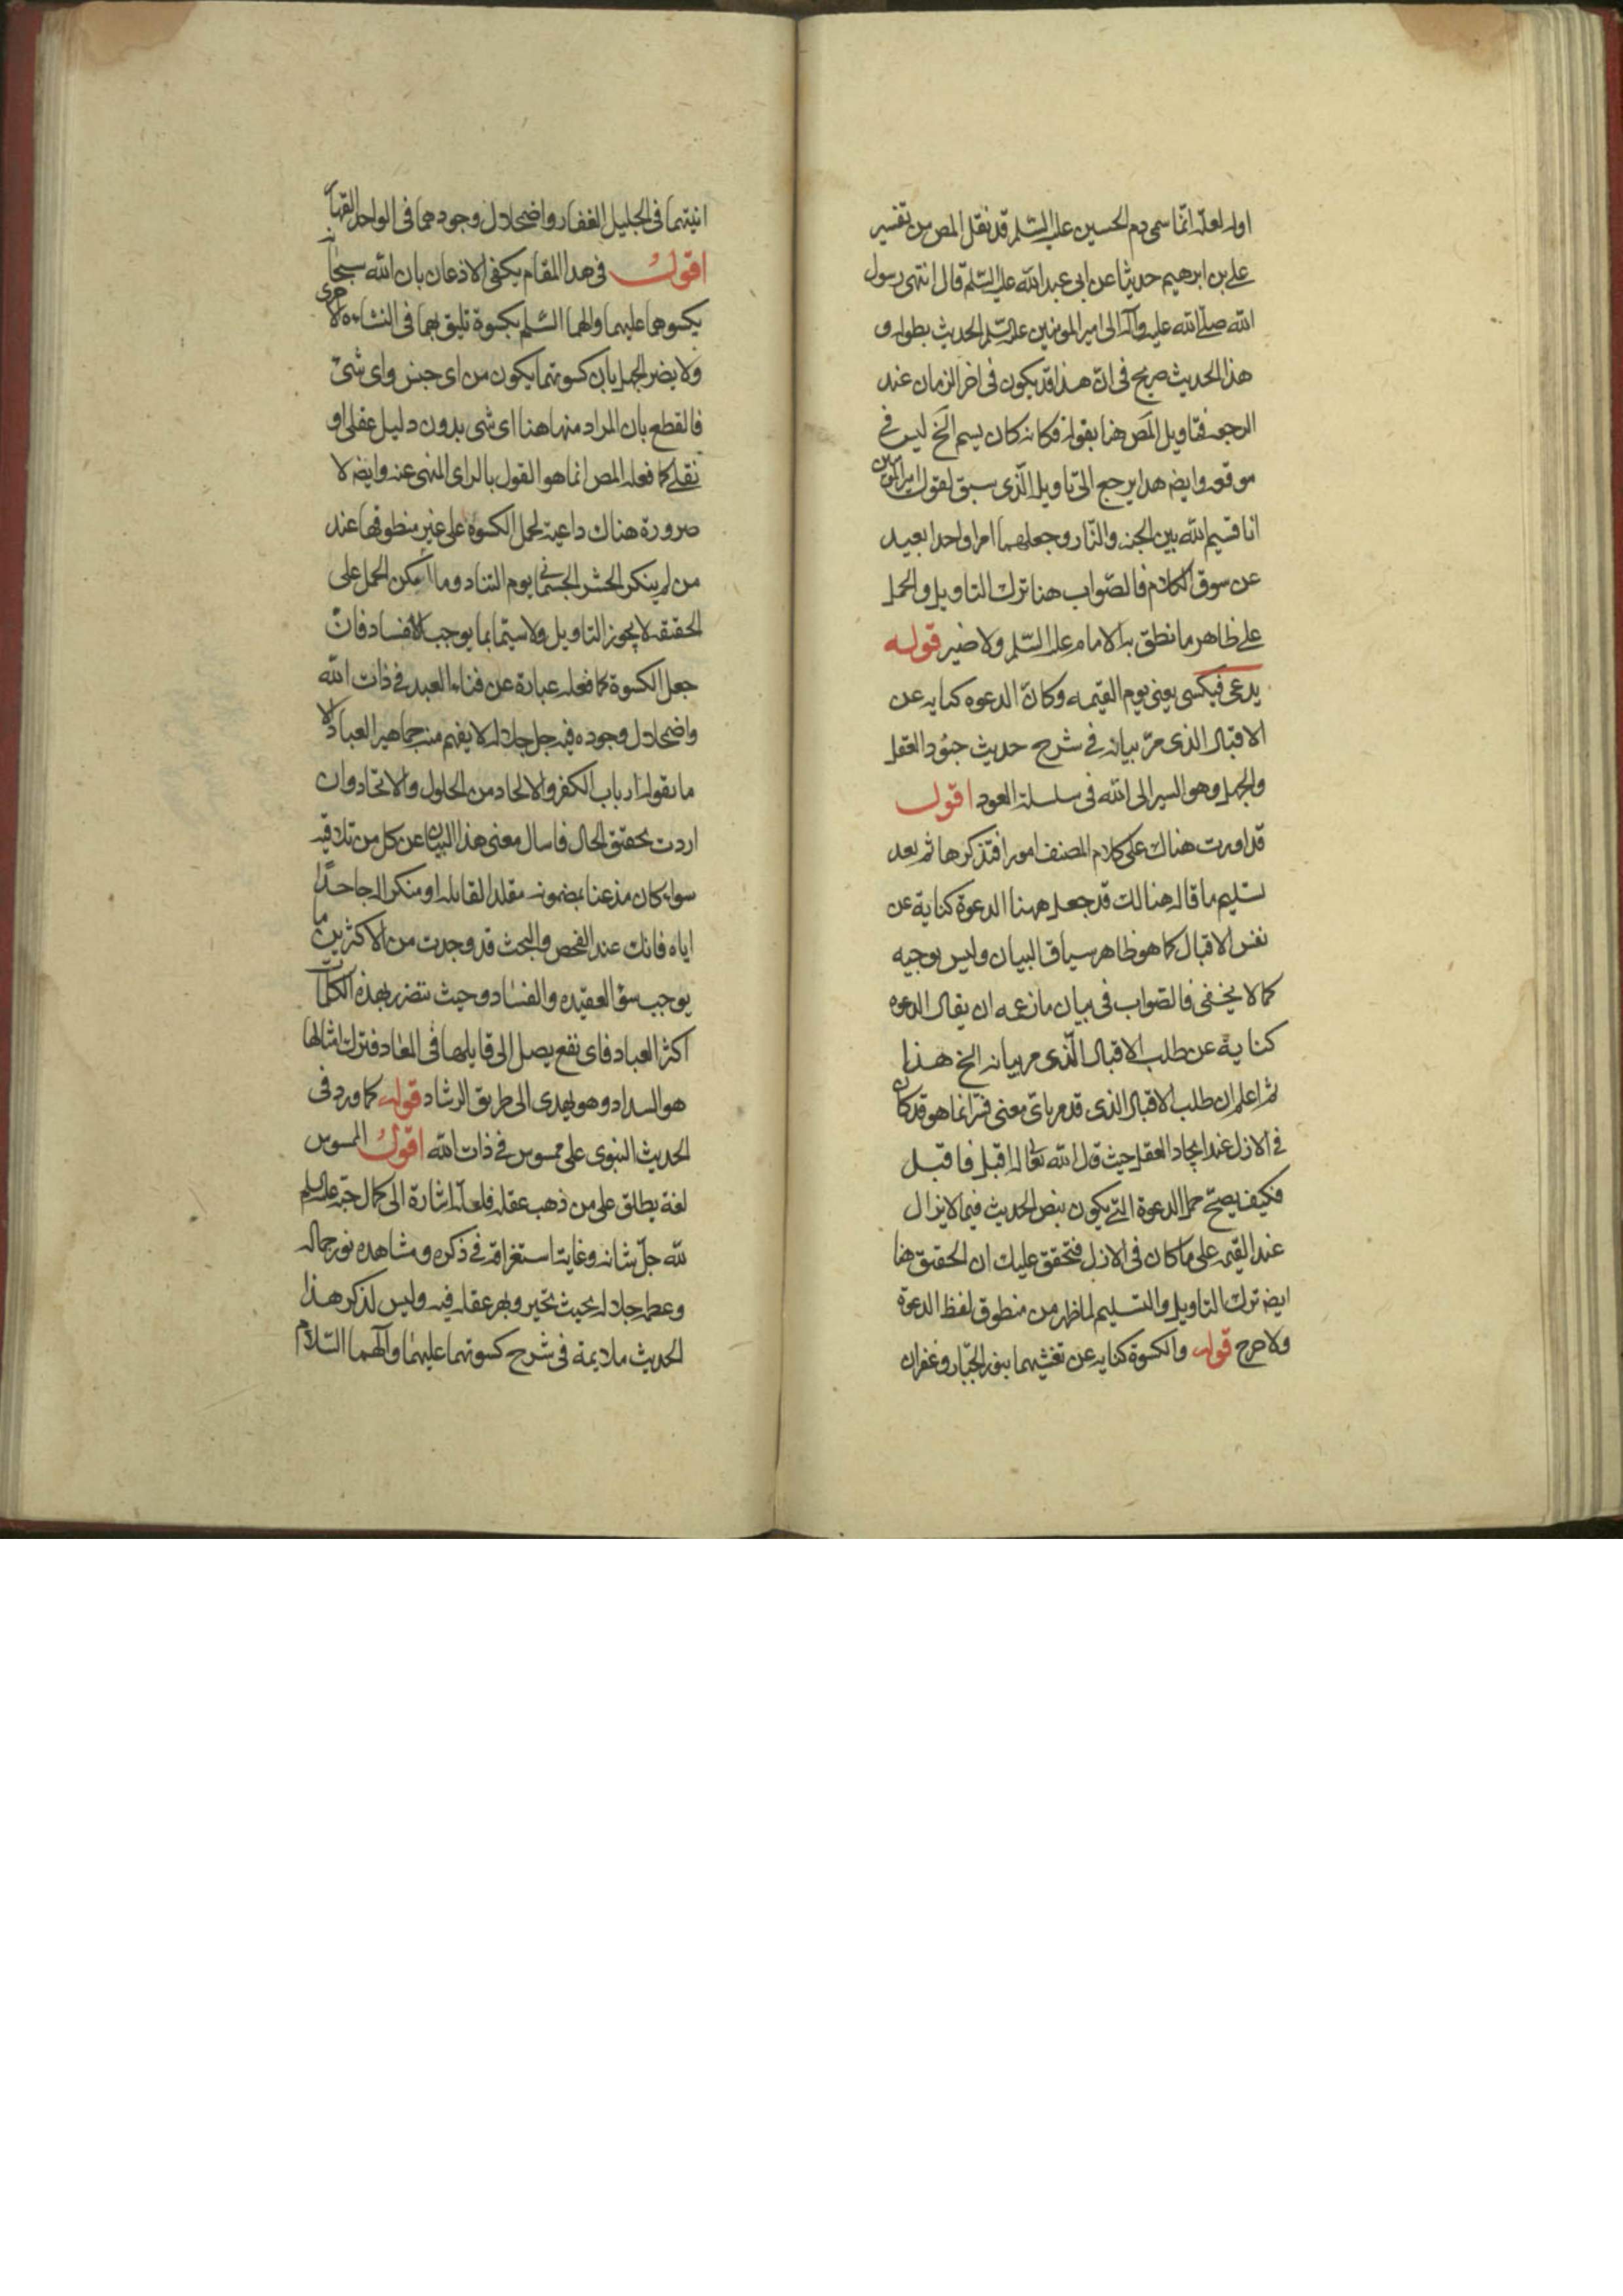 اوله لعله انما سمى دم الحسين عليه السلم قد نقل المص من تفسير
على بن ابرهيم حديثا عن ابى عبد الله عليه السلم قال انتهى رسول
الله صلى الله عليه وآله الى امير المومنين عليه السلم الحديث بطوله و
هذا الحديث صريح فى ان هذا قد يكون فى اخر الزمان عند
الرجعه فتاويل المص هنا بقوله فكانه كان يسم الخ ليس فى
موقعه وايضه هذا يرجع الى تاويله الذى سبق لقول امير المومنين
انا قسيم الله بين الجنه والنار وجعلهما امرا واحدا بعيد
عن سوق الكلام فالصواب هنا ترك التاويل والحمل
على ظاهر ما نطق به الامام عليه السلم ولا ضير قوله
يدعى فيكسى يعنى يوم القيمه وكان الدعوه كنايه عن
الاقبال الذى مر بيانه فى شرح حديث جنود العقل
والجهل وهو السير الى الله فى سلسلة العود اقول
قد اوردت هناك على كلام المصنف امورا فتذكرها ثم بعد
تسليم ما قاله هنالك قد جعل ههنا الدعوة كناية عن
نفس الاقبال كما هو ظاهر سياق البيان وليس بوجيه
كما لا يخفى فالصواب فى بيان ما زعمه ان يقال الدعوه
كناية عن طلب الاقبال الذى مر بيانه الخ هذا
ثم اعلم ان طلب الاقبال الذى قد مر باى معنى فسر انما هو قد كان
فى الازل عند ايجاد العقل حيث قال الله تعالى له اقبل فاقبل
فكيف يصح حمل الدعوة التى يكون بنص الحديث فيما لا يزال
عند القيمه على ما كان فى الازل فتحقق عليك ان الحقيق هنا
ايضه ترك التاويل والتسليم لما ظهر من منطوق لفظ الدعوة
ولا حرج قوله والكسوة كنايه عن تغشيهما بنور الجبار وغفران
انيتهما فى الجليل الغفار واضمحلال وجودهما فى الواحد القهار
اقول فى هذا المقام يكفى الاذعان بان الله سبحانه
يكسوهما عليهما والهما السلم بكسوة تليق بهما فى النشاءه الاخرى
ولا يضر الجهل بان كسوتهما يكون من اى جنس واى شئ
فالقطع بان المراد منها هنا اى شى بدون دليل عقلى او
نقلى كما فعله المص انما هو القول بالراى المنهى عنه وايضه لا
ضرورة هناك داعية لحمل الكسوة على غير منطوقها عند
من لم ينكر الحشر الجسمانى يوم التناد وما امكن الحمل على
الحقيقه لا يجوز التاويل ولا سيما بما يوجب الافساد فان
جعل الكسوة كما فعله عبارة عن فناء العبد فى ذات الله
واضمحلال وجوده فيه جل جلاله لا يفهم منه جماهير العباد الا
ما يقوله ارباب الكفر والالحاد من الحلول والاتحاد وان
اردت تحقيق الحال فاسال معنى هذا البيان عن كل من تلاقيه
سواء كان مذعنا بمضمونه مقلدا لقايله او منكرا له جاحدا
اياه فانك عند الفحص والبحث قد وجدت من الاكثرين ما
يوجب سؤ العقيده والفساد وحيث تتضرر بهذه الكلمات
اكثر العباد فاى نفع يصل الى قايلها فى المعاد فترك امثالها
هو السداد وهو يهدى الى طريق الرشاد قوله كما ورد فى
الحديث النبوى على ممسوس فى ذات الله اقول الممسوس
لغة يطلق على من ذهب عقله فلعله اشارة الى كمال حبه عليه السلم
لله جل شانه وغاية استغراقه فى ذكره ومشاهده نور جماله
وعظم جلاله بحيث تحير وبهر عقله فيه وليس لذكر هذا
الحديث ملايمة فى شرح كسوتهما عليهما وآلهما السلام